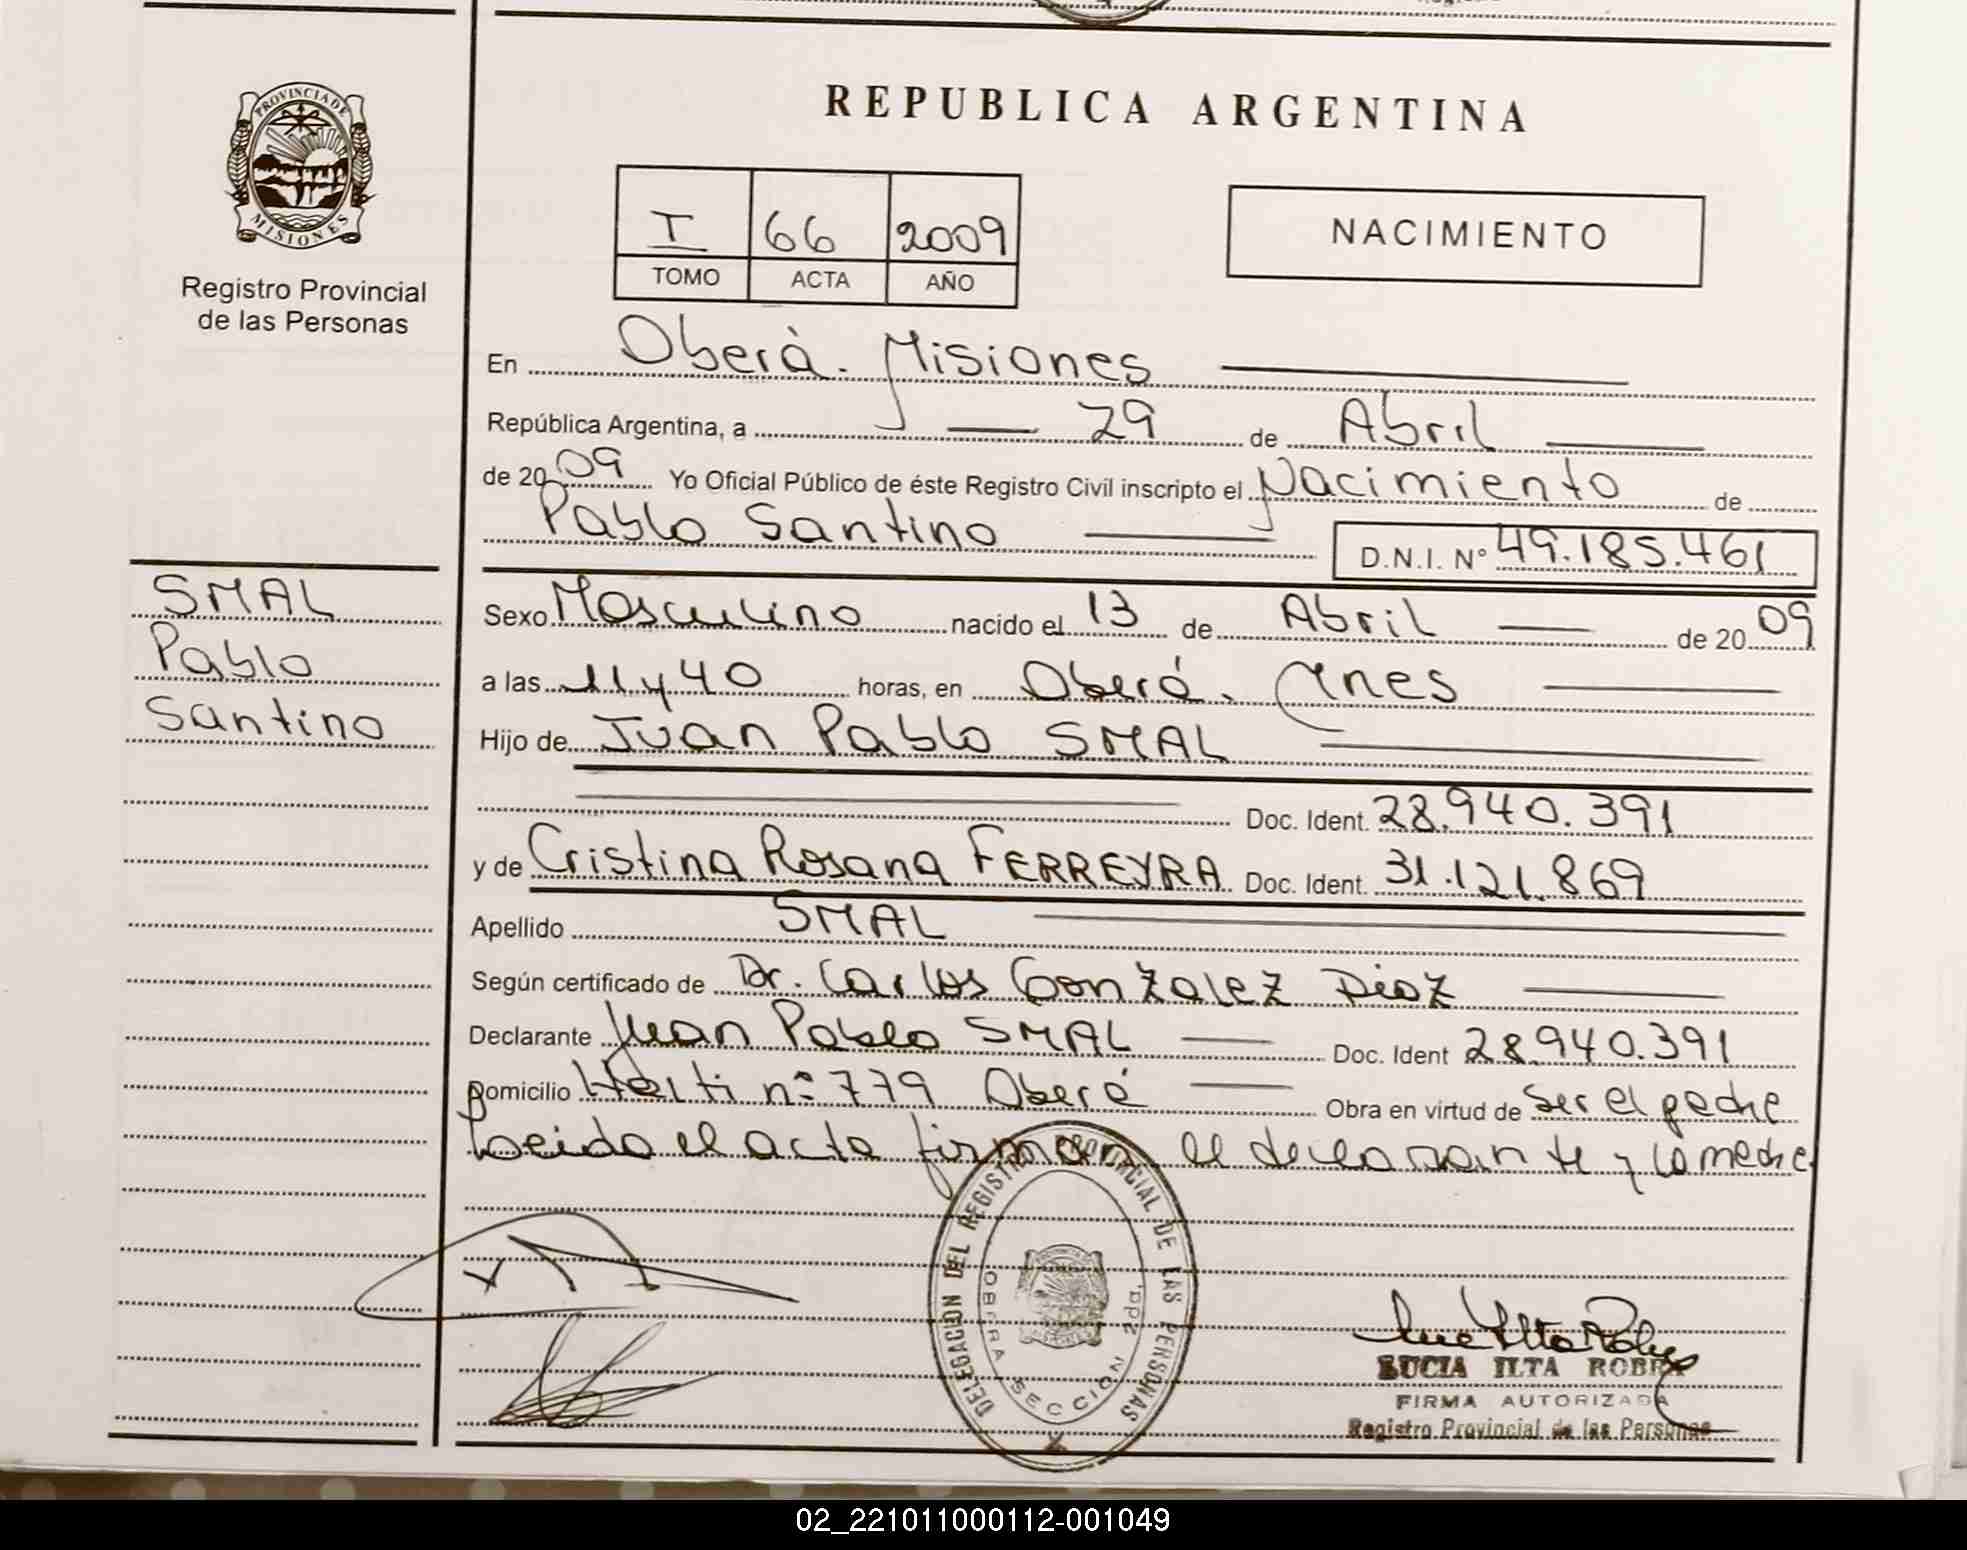 PROVINCIA DE
MISIONES
Registro Provincial
de las Personas
REPUBLICA ARGENTINA
I 66 2009
TOMO ACTA AÑO
NACIMIENTO
En Oberà. Misiones
República Argentina, a 29 de Abril
de 2009 Yo Oficial Público de éste Registro Civil inscripto el Nacimiento de
Pablo Santino D.N.I. Nº 49.185.461
SMAL
Pablo
Santino
Sexo Masculino nacido el 13 de Abril de 2009
a las 11 y 40 horas, en Oberá. Mnes
Hijo de Juan Pablo SMAL
Doc. Ident. 28.940.391
y de Cristina Rosana FERREYRA Doc. Ident. 31.121.869
Apellido SMAL
Según certificado de Dr. Carlos Gonzalez Diaz
Declarante Juan Pablo SMAL Doc. Ident 28.940.391
Domicilio nº 779 Oberá Obra en virtud de ser el padre
Leido el acta firman el declarante y la madre
DELEGACION DEL REGISTRO PROVINCIAL DE LAS PERSONAS
OBERA SECCION 2da.
LUCIA ILTA
FIRMA AUTORIZADA
Registro Provincial de las Personas
02_221011000112-001049